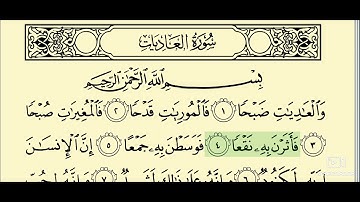 سُورَةُ الْعَادِيَاتِ
بِسْمِ اللَّهِ الرَّحْمَٰنِ الرَّحِيمِ
وَالْعَادِيَاتِ ضَبْحًا ١ فَالْمُورِيَاتِ قَدْحًا ٢ فَالْمُغِيرَاتِ صُبْحًا
٣ فَأَثَرْنَ بِهِ نَقْعًا ٤ فَوَسَطْنَ بِهِ جَمْعًا ٥ إِنَّ الْإِنسَانَ